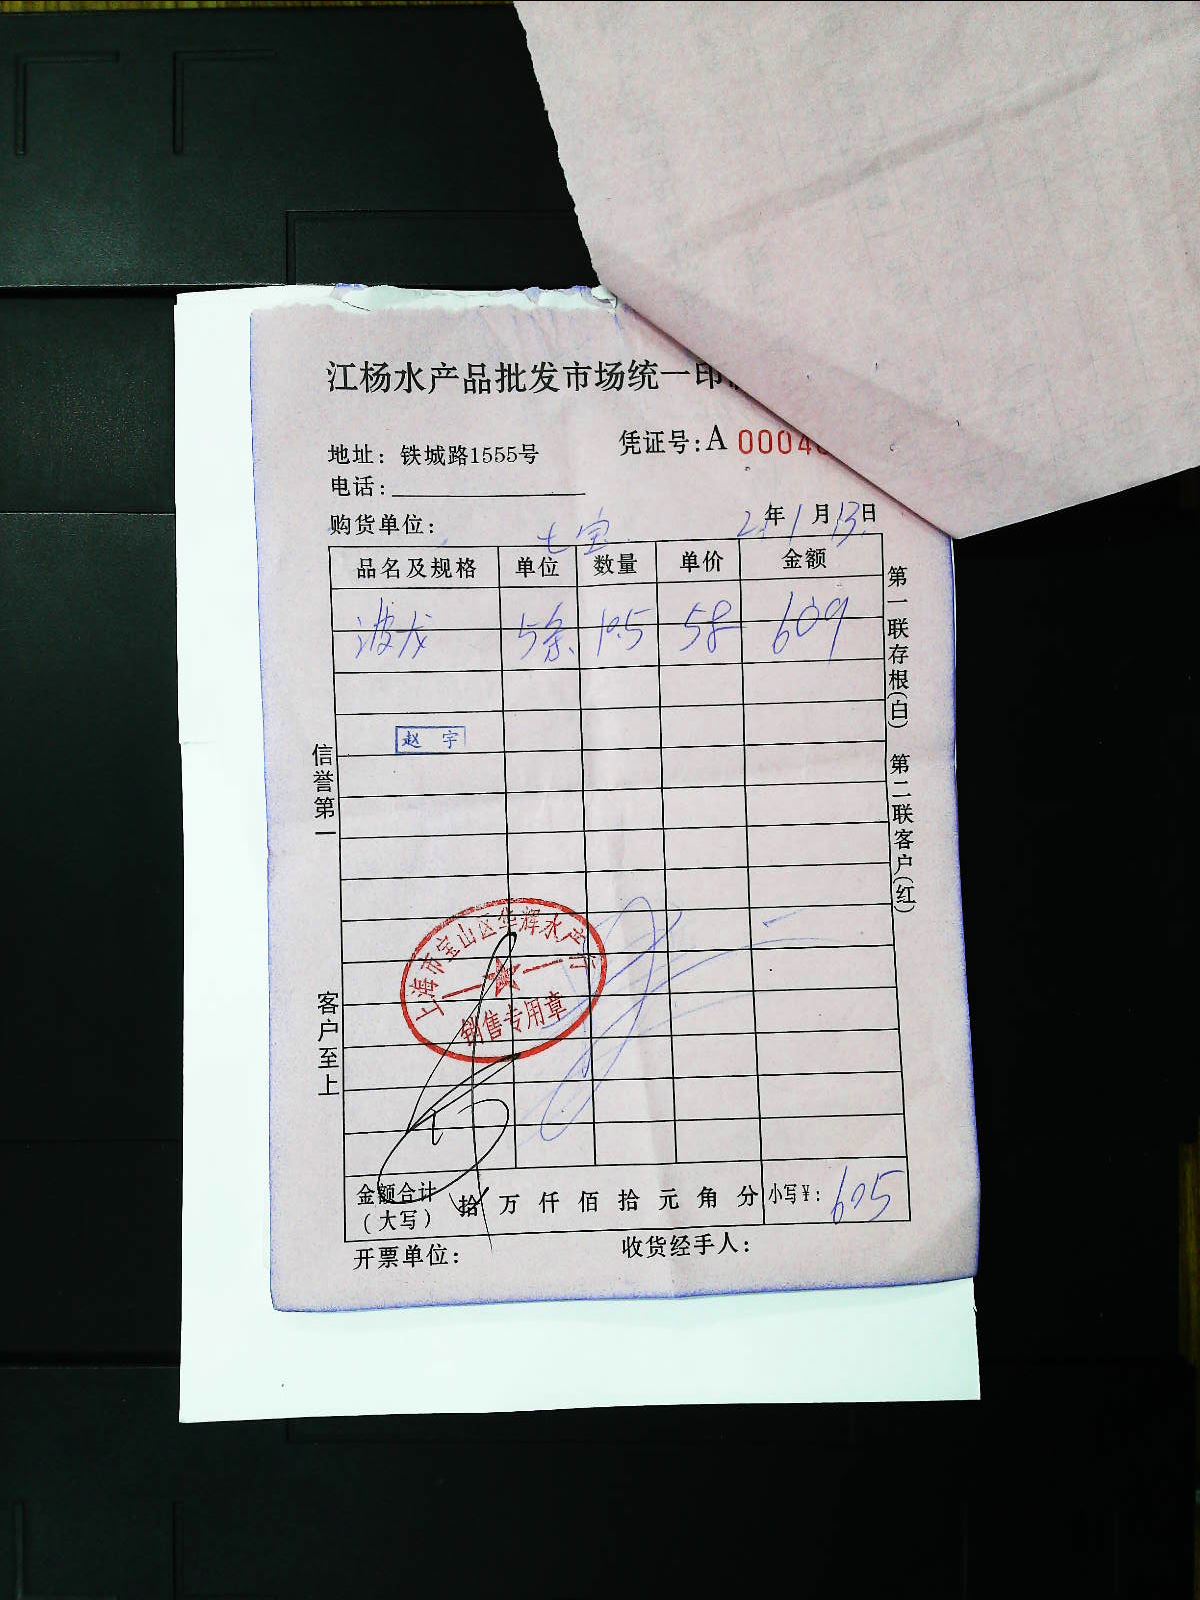 江杨水产品批发市场统一印
地址：铁城路1555号 凭证号：A 0004
电话：
购货单位： 七宝 21年1月13日
品名及规格 单位 数量 单价 金额
波龙 5条 10.5 58 609
赵宇
信誉第一
客户至上
第一联存根（白） 第二联客户（红）
上海市宝山区华辉水产行
销售专用章
金额合计（大写） 拾万仟佰拾元角分 小写¥：605
开票单位： 收货经手人：